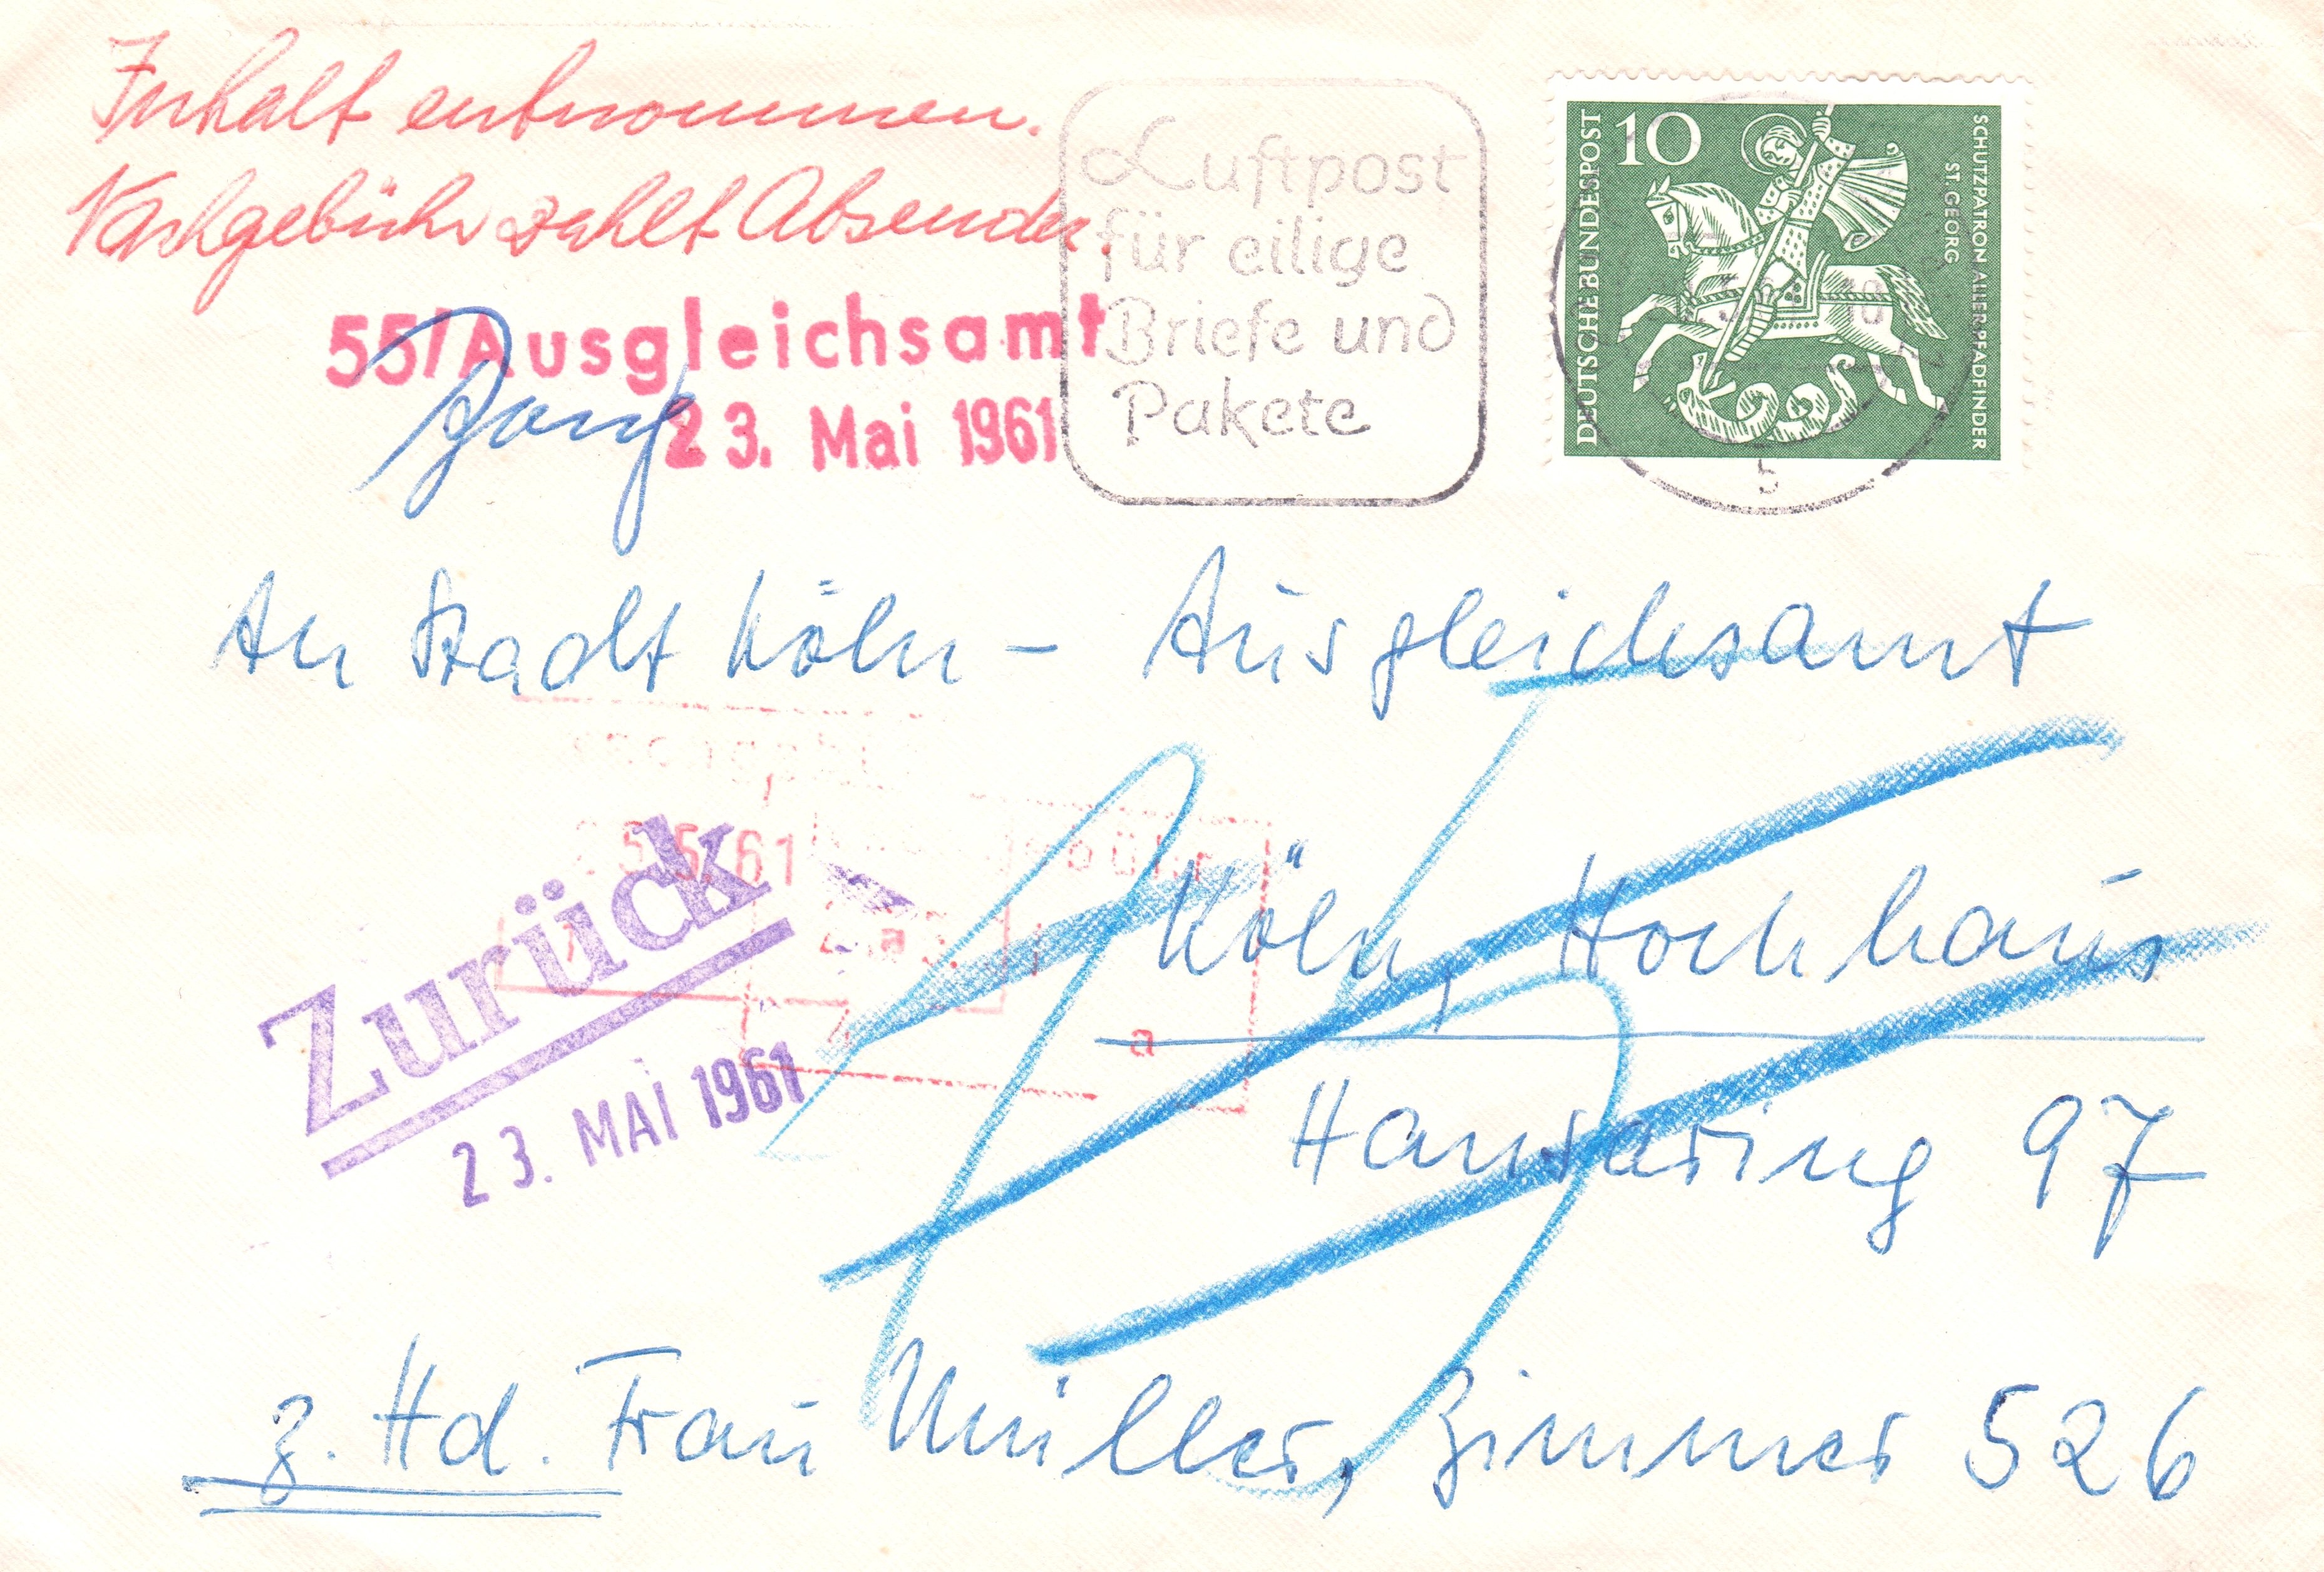 Inhalt entnommen.
Nachgebühr zahlt Absender.
55/Ausgleichsamt
23. Mai 1961
Luftpost
für eilige
Briefe und
Pakete
10
DEUTSCHE BUNDESPOST
SCHUTZPATRON ALLER PFADFINDER
ST. GEORG
10
b
An Stadt Köln – Ausgleichsamt
5.61
Zurück
23. MAI 1961
a
a
Köln, Hochhaus
Hansaring 97
z. Hd. Frau Müller, Zimmer 526